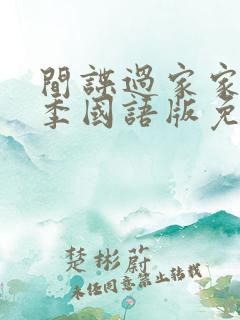 間諜過家家
季國語版免
楚彬蔚
未經同意禁止轉載